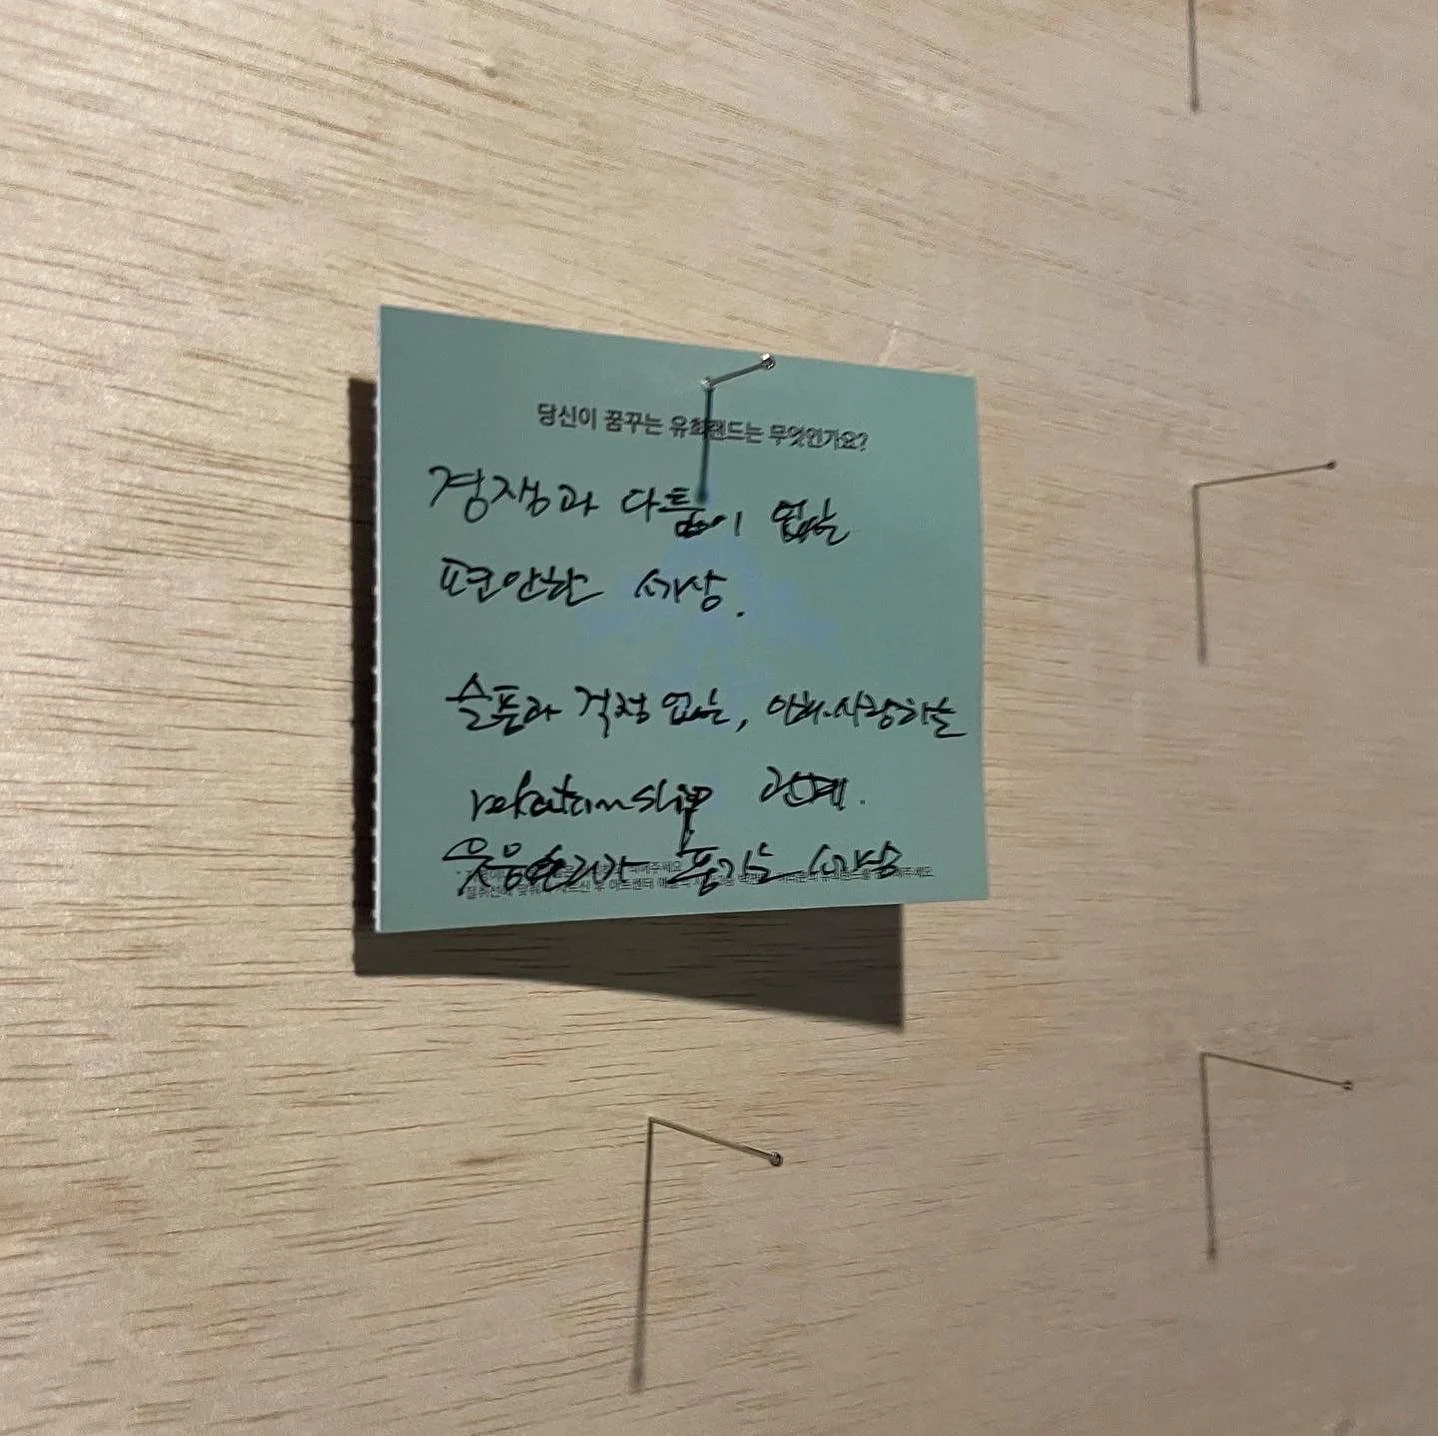 당신이 꿈꾸는 유희랜드는 무엇인가요?
경쟁과 다툼이 없는
편안한 세상.
슬픔과 걱정 없는, 이해.사랑하는
relationship 관계.
풍기는 세상